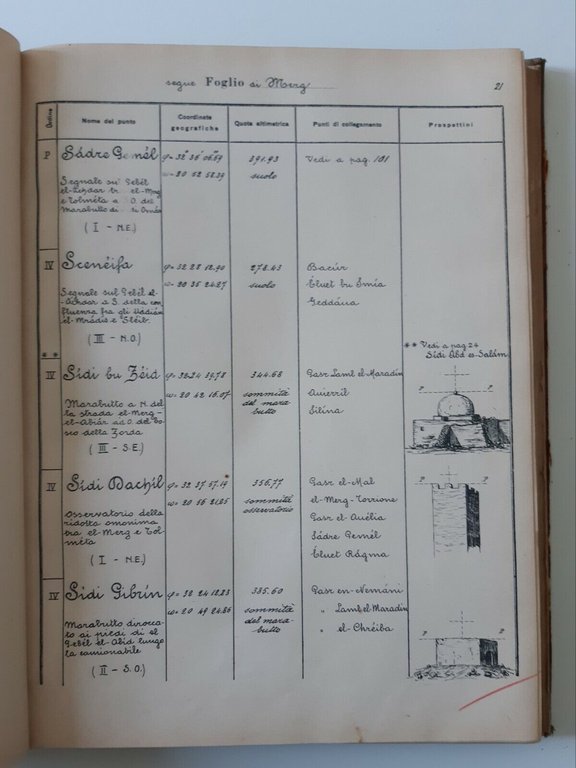 segue Foglio di Merg
21
Ordine
Nome del punto
Coordinate geografiche
Quota altimetrica
Punti di collegamento
Prospettini
P
Sádre Gemél
Segnale su Gebél
el-Achdar tr el-Merg
e Tolméta a O. del
Marabutto di Si Omár
(I - N.E.)
φ= 32° 36' 06".69
ω= 20 52 58.39
391.93
suolo
Vedi a pag. 101
IV
Scenéifa
Segnale sul Gebél el-
Achdar a S. della con-
fluenza fra gli Uddián
el-Mrádis e Sléib.
(III - N.O.)
φ= 32 28 12.90
ω= 20 35 24.27
278.43
suolo
Bacúr
Eluet bu Smía
Geddáua
**
IV
Sídi bu Zéid
Marabutto a N. del-
la strada el-Merg-
el-Abiár ad O. del bo-
sco della Zorda
(III - S.E.)
φ= 32 24 39.78
ω= 20 42 16.07
344.68
sommità
del mara-
butto
Gasr Laml el-Maradín
Auierríl
Silína
** Vedi a pag 24
Sídi Abd es-Salám
P P
IV
Sídi Dachíl
Osservatorio della
ridotta omonima
fra el-Merg e Tol-
méta
(I - N.E.)
φ= 32 37 57.19
ω= 20 56 21.85
356,77
sommità
osservatorio
Gasr el-Mal
el-Merg-Torrione
Gasr el-Auélia
Sádre Gemél
Eluet Rágma
P P
IV
Sídi Gibrín
Marabutto dirocca-
to ai piedi di el
Gebél el-Abid lungo
la camionabile
(II - S.O.)
φ= 32 24 12.23
ω= 20 49 24.86
335.60
sommità
del mara-
butto
Gasr en-Nemáni
" Laml el-Maradín
" el-Chréiba
P P